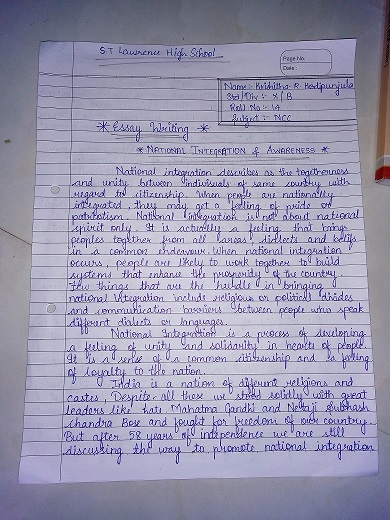 ST Lawrence High School
Page No.
Date:
Name :- Krishitha R
Std/Div :- X/B
Roll No :- 14
Subject :- NCC
* Essay Writing *
* NATIONAL INTEGRATION & AWARENESS *
National integration describes as the togetherness
and unity between individuals of same country with
regard to citizenship. When people are nationally
integrated, they may get a feeling of pride or
patriotism. National integration is not about national
spirit only. It is actually a feeling that brings
peoples together from all areas, dialects and beliefs
in a common endeavour. When national integration
occurs, people are likely to work together to build
systems that enhance the prosperity of the country.
Few things that are the hurdle in bringing
national integration include religious or political divides
and communication barriers between people who speak
different dialects or languages.
National Integration is a process of developing
a feeling of unity and solidarity in hearts of people.
It is a sense of a common citizenship and a feeling
of loyalty to the nation.
India is a nation of different religions and
castes, Despite all these we stood solidly with great
leaders like Mahatma Gandhi and Netaji Subhash
chandra Bose and fought for freedom of our country.
But after 58 years of independence we are still
discussing the way to promote national integration